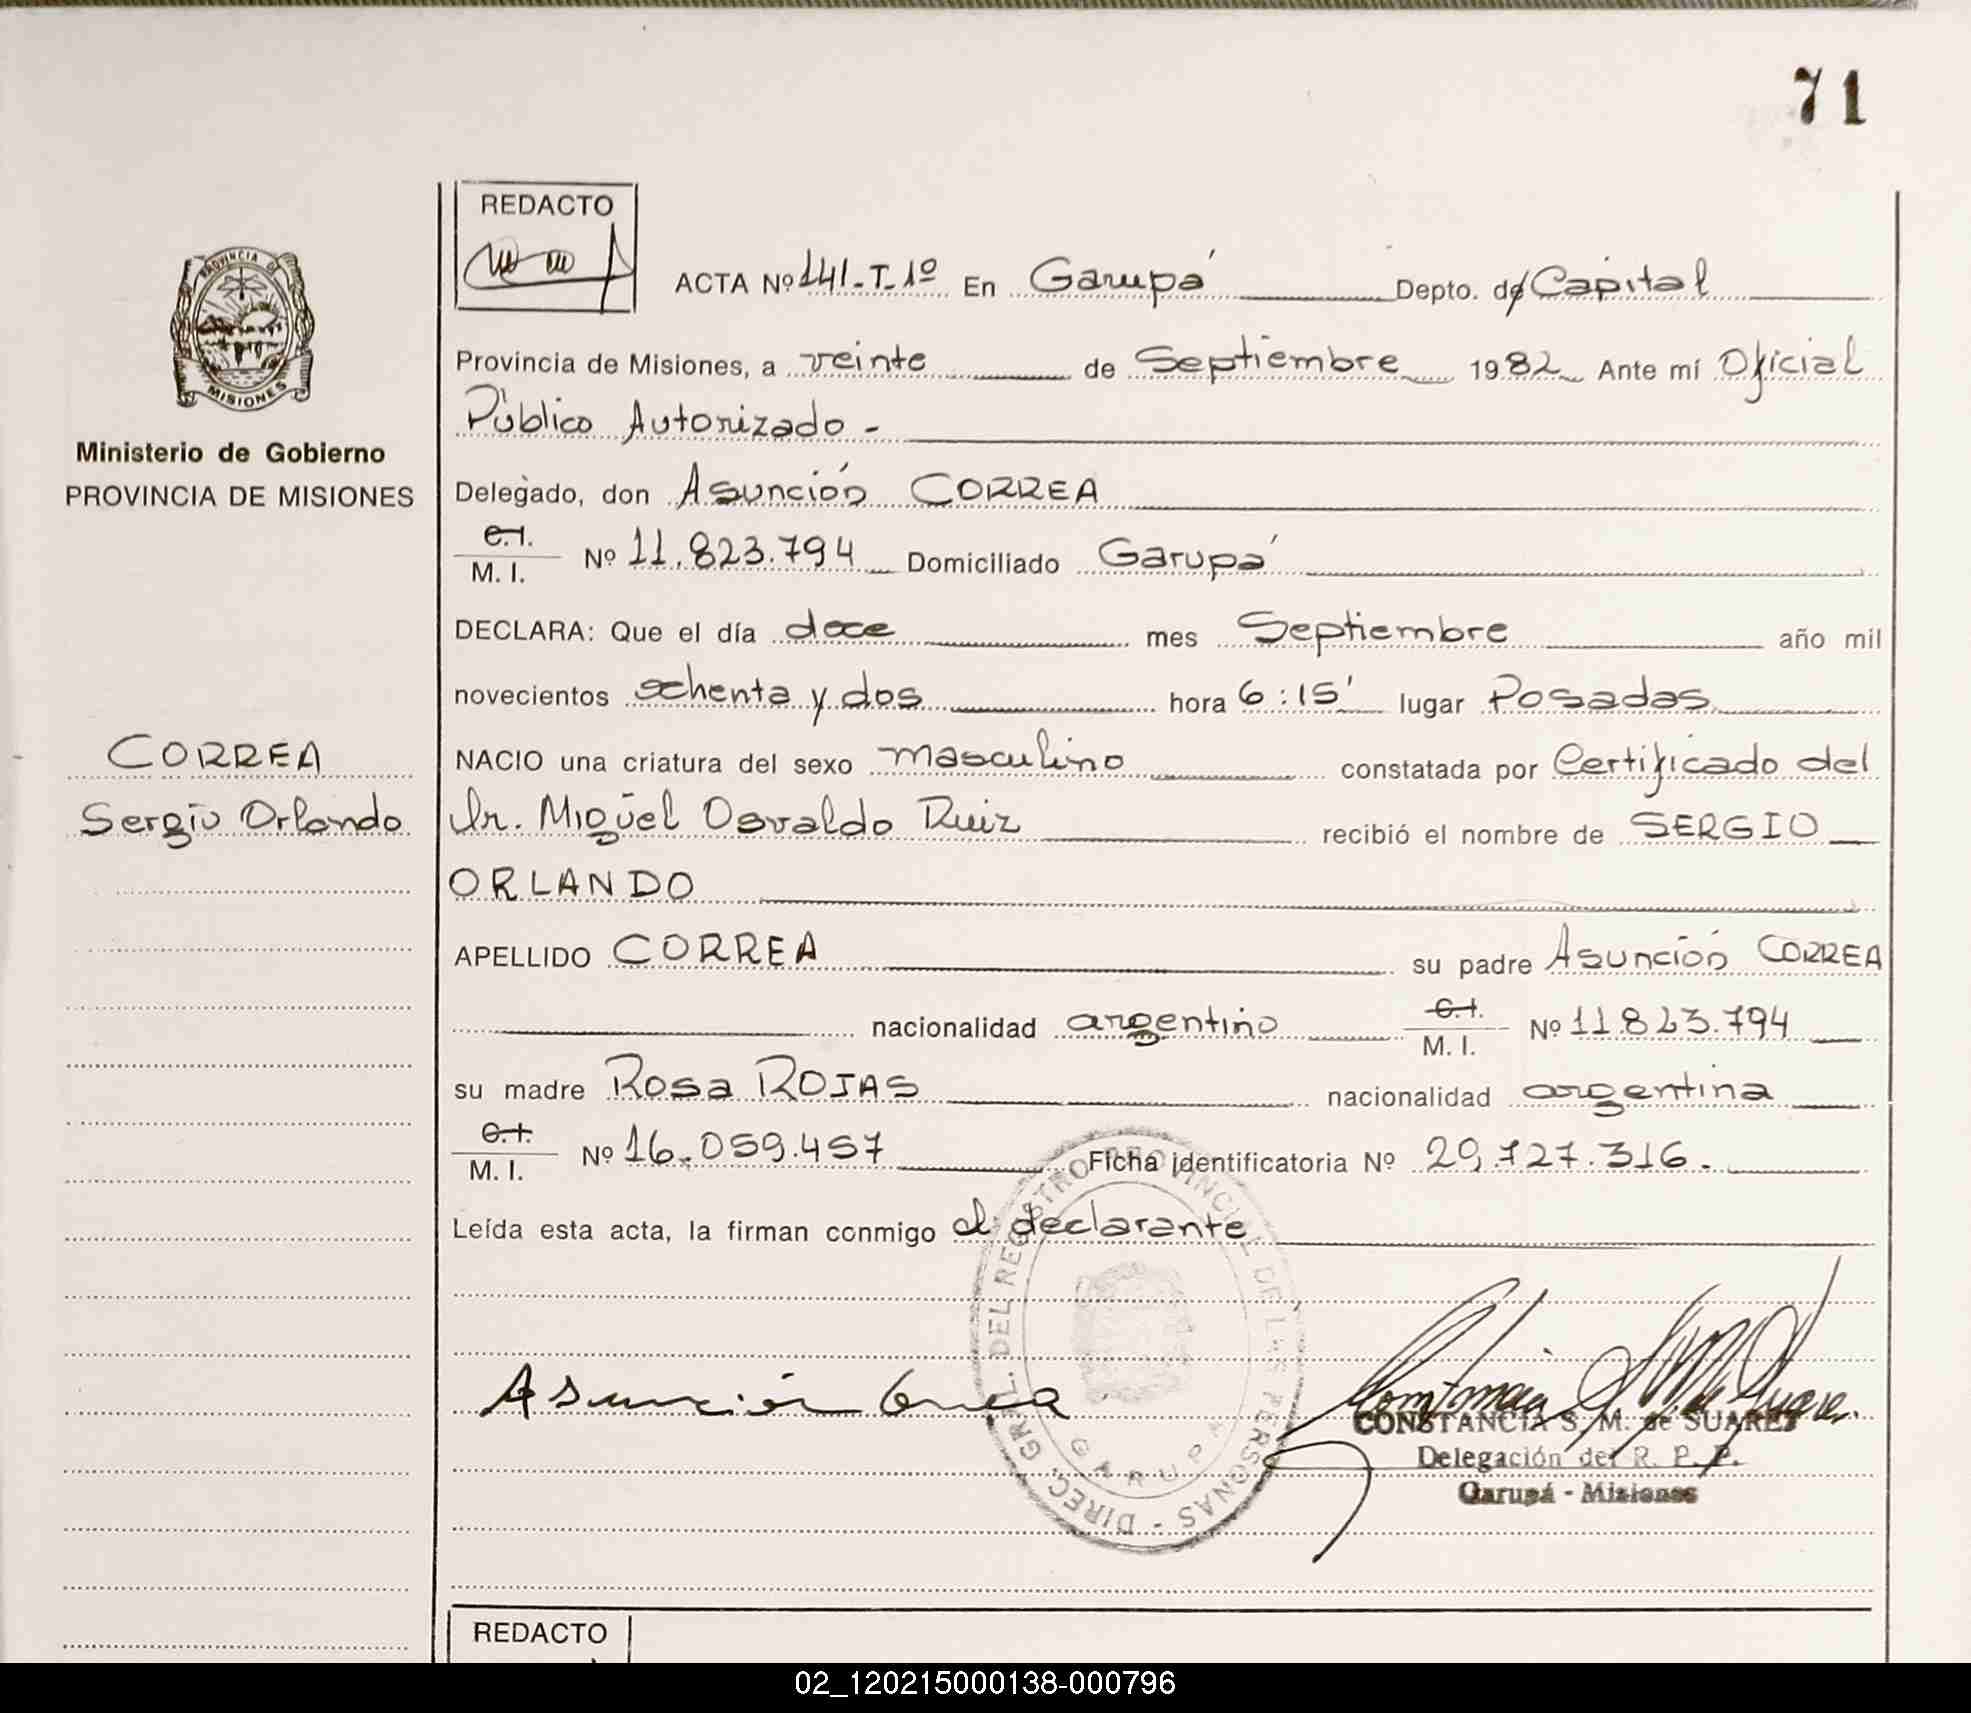 71
REDACTO
ACTA Nº 141-T-1º En Garupá Depto. de Capital
PROVINCIA DE
MISIONES
Provincia de Misiones, a veinte de Septiembre 1982 Ante mí Oficial
Público Autorizado -
Ministerio de Gobierno
PROVINCIA DE MISIONES
Delegado, don Asunción CORREA
C.I.
M. I. Nº 11.823.794 Domiciliado Garupá
DECLARA: Que el día doce mes Septiembre año mil
novecientos ochenta y dos hora 6:15' lugar Posadas
CORREA
Sergio Orlando
NACIO una criatura del sexo masculino constatada por Certificado del
Dr. Miguel Osvaldo Ruiz recibió el nombre de SERGIO
ORLANDO
APELLIDO CORREA su padre Asunción CORREA
nacionalidad argentino C.I.
M. I. Nº 11.823.794
su madre Rosa ROJAS nacionalidad argentina
C.I.
M. I. Nº 16.059.457 Ficha Identificatoria Nº 29.727.316.
Leída esta acta, la firman conmigo el declarante
DIREC. GRAL. DEL REGISTRO PROVINCIAL DE LAS PERSONAS -
GARUPA
Asunción Correa
CONSTANCIA S. M. de SUAREZ
Delegación del R. P. P.
Garupá - Misiones
REDACTO
02_120215000138-000796